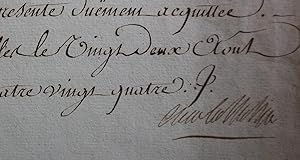 presente duëment acquillée.
lles le Vingt Deux Aout
atre vingt quatre./.